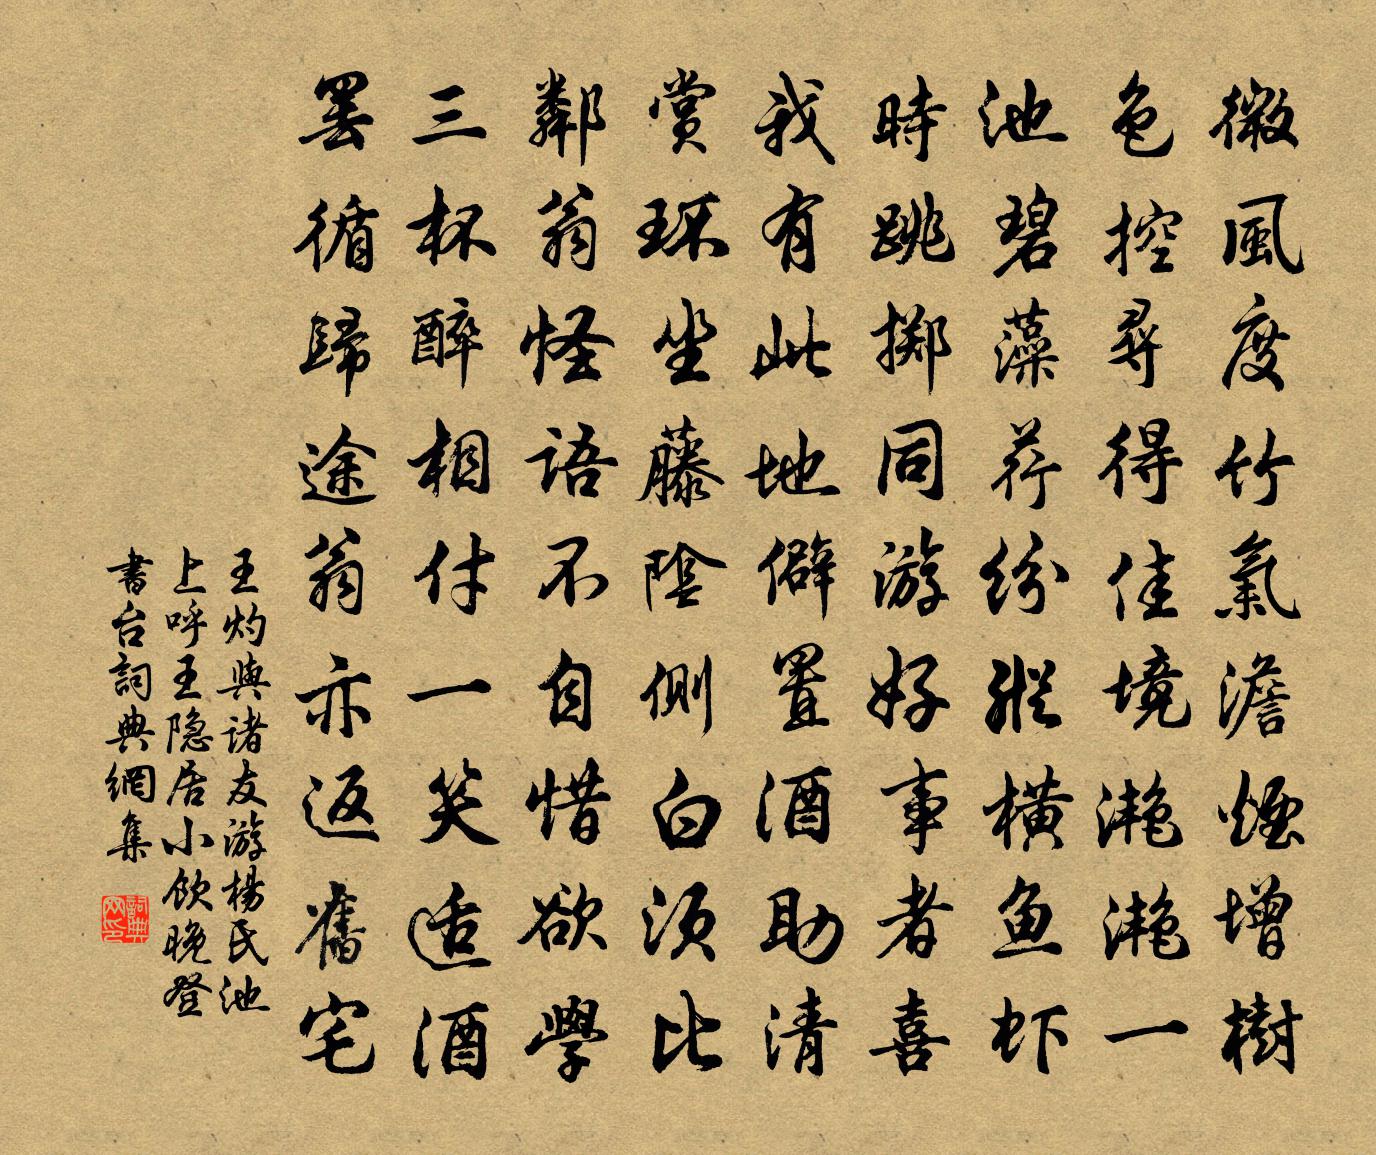 微風度竹氣澹煙增樹
色控尋得佳境灔灔一
池碧藻荇紛縱橫鱼虾
時跳擲同游好事者喜
我有此地僻置酒助清
賞环坐藤陰側白须比
鄰翁怪語不自惜欲學
三杯醉相付一笑适酒
罢循歸途翁亦返舊宅
王灼與诸友游楊氏池
上呼王隐居小飲晚登
書台詞典網集
詞典网印